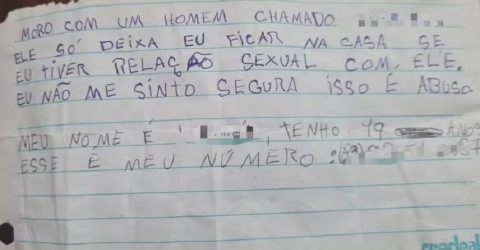 MORO COM UM HOMEM CHAMADO
ELE SÓ DEIXA EU FICAR NA CASA SE
EU TIVER RELAÇÃO SEXUAL COM ELE.
EU NÃO ME SINTO SEGURA ISSO É ABUSO
MEU NOME É , TENHO 19 ANOS
ESSE É MEU NÚMERO :
credeal